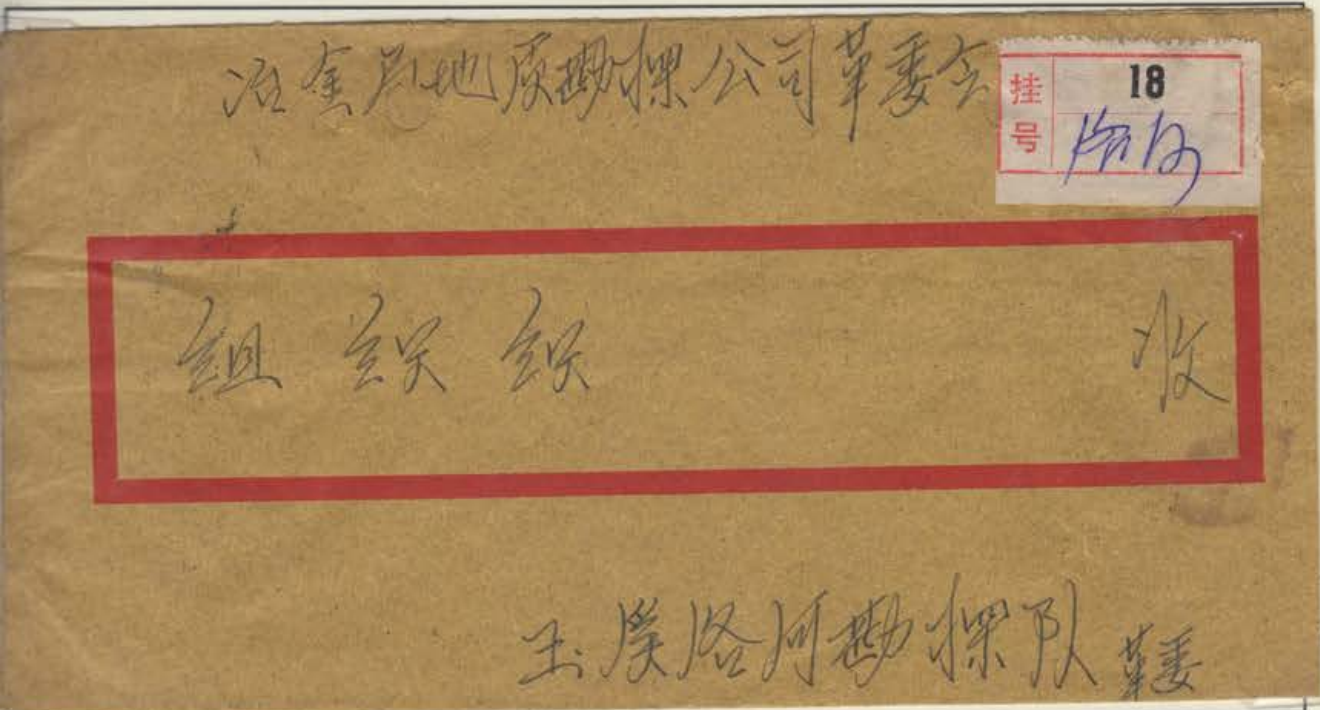 冶金局地质勘探公司革委会
挂号
18
洛河
组织组
收
玉溪洛河勘探队革委